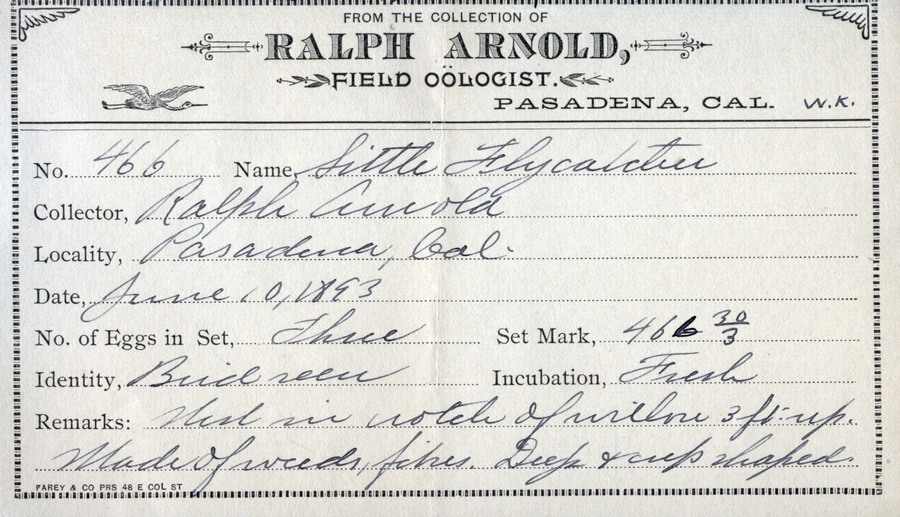 FROM THE COLLECTION OF
RALPH ARNOLD,
FIELD OÖLOGIST.
PASADENA, CAL. W.K.
No. 466 Name, Little Flycatcher
Collector, Ralph Arnold
Locality, Pasadena, Cal.
Date, June 10, 1893
No. of Eggs in Set, Three Set Mark, 466 30/3
Identity, Bird seen Incubation, Fresh
Remarks: Nest in notch of willow 3 ft. up.
Made of weeds, fibres. Deep & cup shaped.
FAREY & CO PRS 48 E COL ST